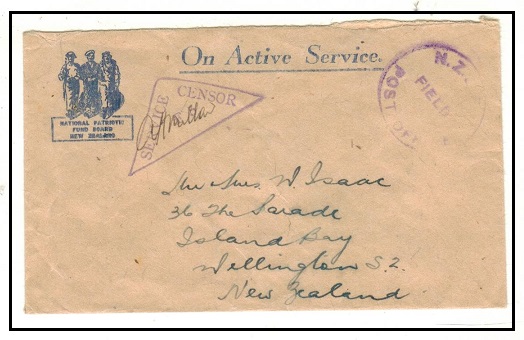 On Active Service.
NATIONAL PATRIOTIC
FUND BOARD
NEW ZEALAND
SERVICE CENSOR
N.Z.
FIEL
POST OF
Mr Mrs W Isaac
36 The Parade
Island Bay
Wellington S.2.
New Zealand